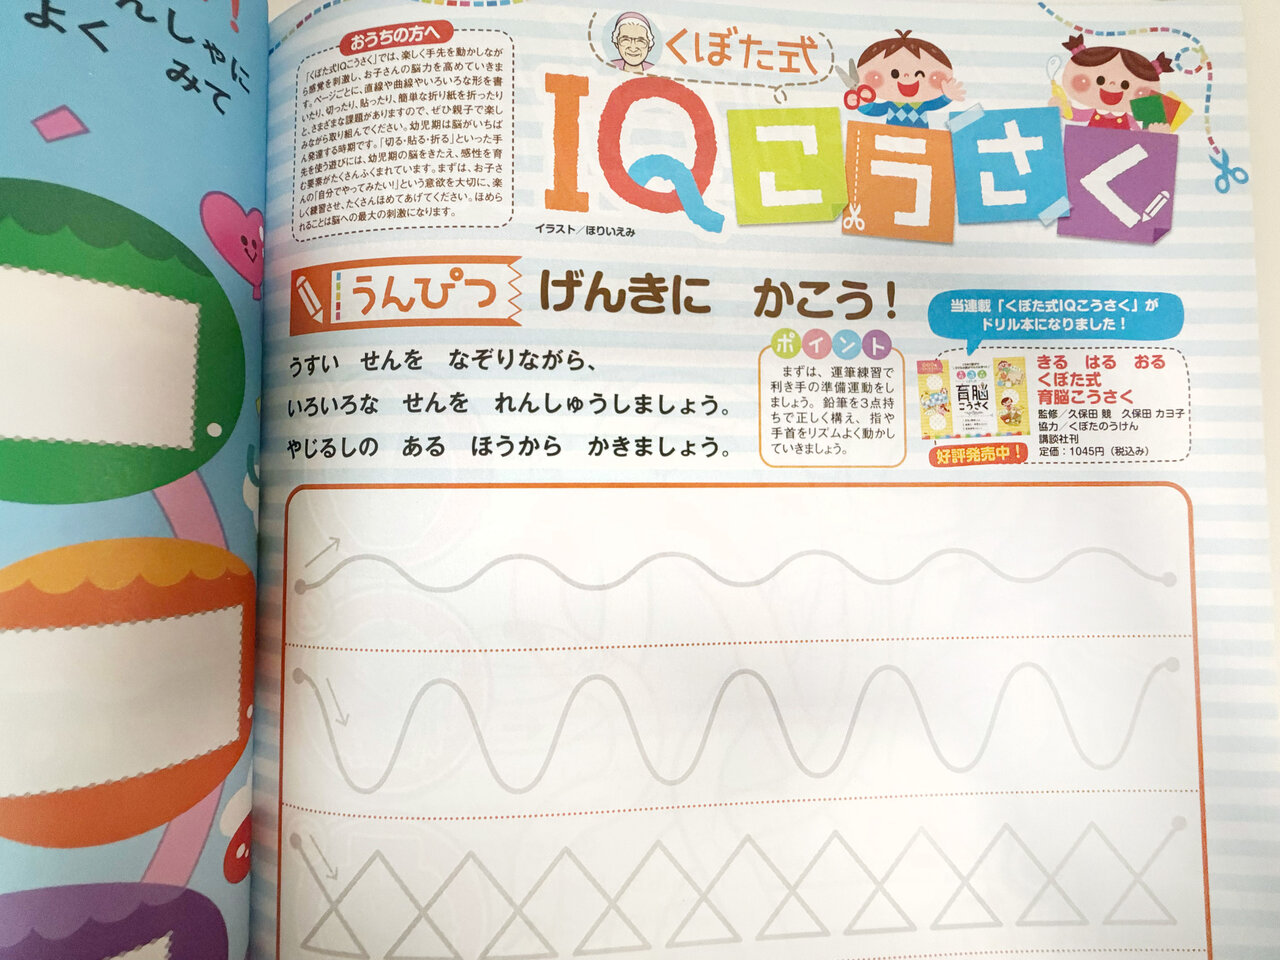 よく
んしゃに
みて
おうちの方へ
「くぼた式IQこうさく」では、楽しく手先を動かしなが
ら感覚を刺激し、お子さんの脳力を高めていきま
す。ページごとに、直線や曲線やいろいろな形を書
いたり、切ったり、貼ったり、簡単な折り紙を折ったり
と、さまざまな課題がありますので、ぜひ親子で楽し
みながら取り組んでください。幼児期は脳がいちば
ん発達する時期です。「切る・貼る・折る」といった手
先を使う遊びには、幼児期の脳をきたえ、感性を育
む要素がたくさんふくまれています。まずは、お子さ
んの「自分でやってみたい!」という意欲を大切に、楽
しく練習させ、たくさんほめてあげてください。ほめら
れることは脳への最大の刺激になります。
くぼた式
IQこうさく
イラスト/ほりいえみ
うんぴつ
げんきに かこう!
うすい せんを なぞりながら、
いろいろな せんを れんしゅうしましょう。
やじるしの ある ほうから かきましょう。
ポイント
まずは、運筆練習で
利き手の準備運動をし
ましょう。鉛筆を3点持
ちで正しく構え、指や
手首をリズムよく動かし
ていきましょう。
当連載「くぼた式IQこうさく」が
ドリル本になりました!
育脳
こうさく
好評発売中!
きる はる おる
くぼた式
育脳こうさく
監修/久保田 競 久保田 カヨ子
協力/くぼたのうけん
講談社刊
定価:1045円(税込み)